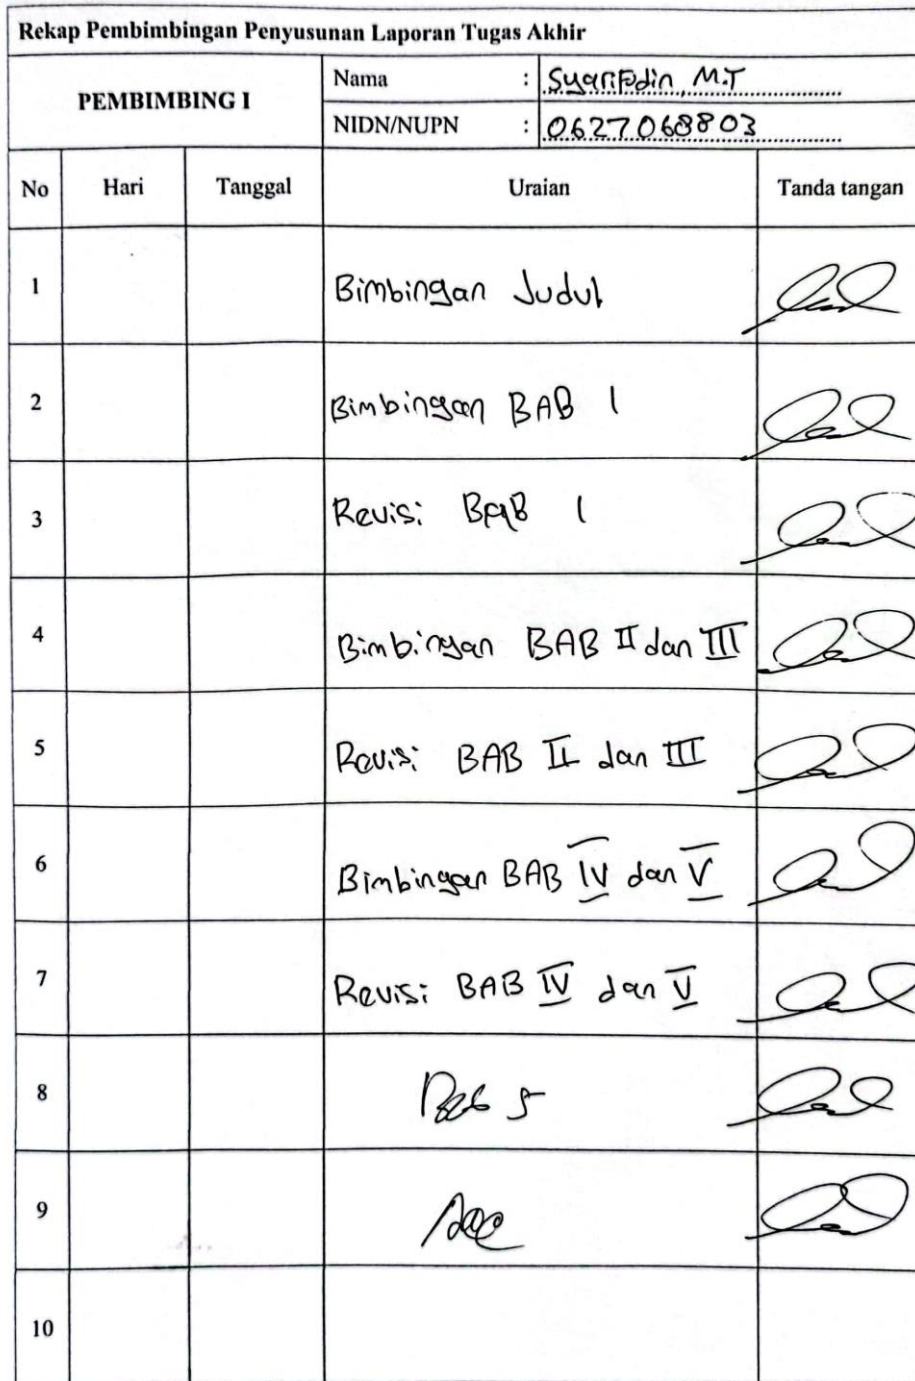 Rekap Pembimbingan Penyusunan Laporan Tugas Akhir
PEMBIMBING I
Nama : Syarifudin, M.T
NIDN/NUPN : 0627068803
No Hari Tanggal Uraian Tanda tangan
1 Bimbingan Judul
2 Bimbingan BAB I
3 Revisi BAB I
4 Bimbingan BAB II dan III
5 Revisi BAB II dan III
6 Bimbingan BAB IV dan V
7 Revisi BAB IV dan V
8 Bab 5
9 Acc
10